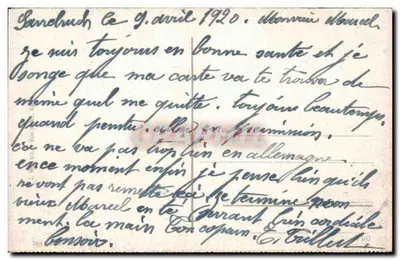 Sarrebruck le 9 avril 1920. Mon vieux Marcel
je suis toujours en bonne santé et je
songe que ma carte va te trouver de
même quel me quitte. toujours beautemps.
quand pendu. allez en
ça ne va pas trop bien en allemagne
ence moment enfin je pense bien qu'ils
ne vont pas remettre ça je termine mon
vieux Marcel en te serrant bien cordiale
ment la main ton copain. E. Tillet
bonsoir.